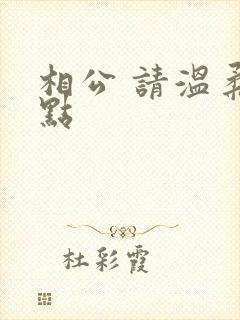 相公 請溫柔
點
杜彩霞